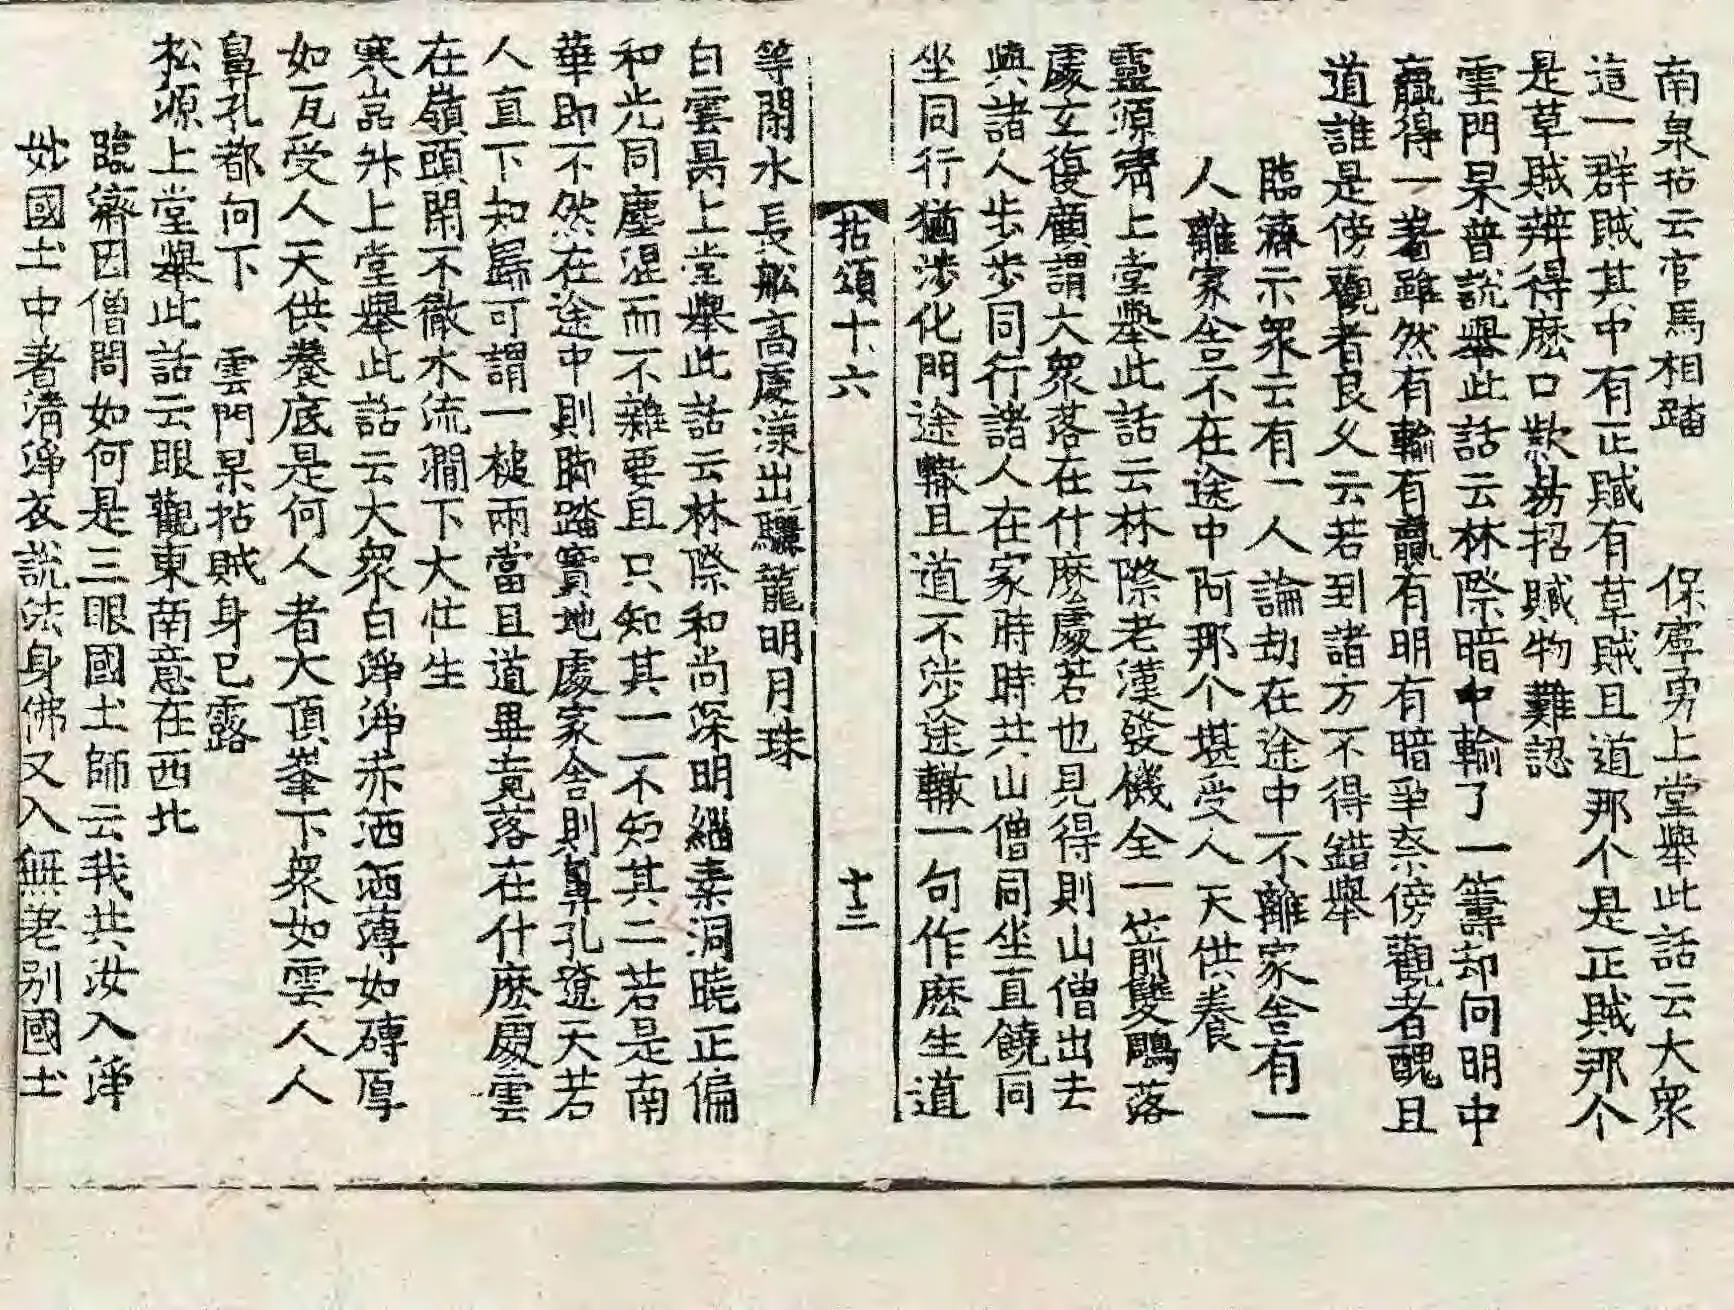 南泉拈云官馬相踏　保寧勇上堂舉此話云大衆
這一群賊其中有正賊有草賊且道那个是正賊那个
是草賊辨得麽口款易招贓物難認
雲門杲普說舉此話云林際暗中輸了一籌却向明中
贏得一著雖然有輸有贏有明有暗爭奈傍觀者醜且
道誰是傍觀者良久云若到諸方不得錯舉
臨濟示衆云有一人論劫在途中不離家舍有一
人離家舍不在途中阿那个堪受人天供養
靈源淸上堂擧此話云林際老漢發機全一箭雙鵰落
處立復顧謂大衆落在什麽處若也見得則山僧出去
與諸人步步同行諸人在家時時共山僧同坐直饒同
坐同行猶涉化門途轍且道不涉途轍一句作麽生道
拈頌十六　十三
等閑水長舩高處漾出驪龍明月珠
白雲昺上堂舉此話云林際和尚深明緇素洞曉正偏
和光同塵混而不雜要且只知其一不知其二若是南
華即不然在途中則脚踏實地處家舍則鼻孔遼天若
人直下知歸可謂一槌兩當且道畢竟落在什麽處雲
在嶺頭閑不徹水流澗下大忙生
寒嵓升上堂舉此話云大衆白淨淨赤洒洒薄如磚厚
如瓦受人天供養底是何人者大頂峯下衆如雲人人
鼻孔都向下　雲門杲拈賊身已露
松源上堂舉此話云眼觀東南意在西北
臨濟因僧問如何是三眼國土師云我共汝入淨
妙國土中著淸淨衣說法身佛又入無差別國土